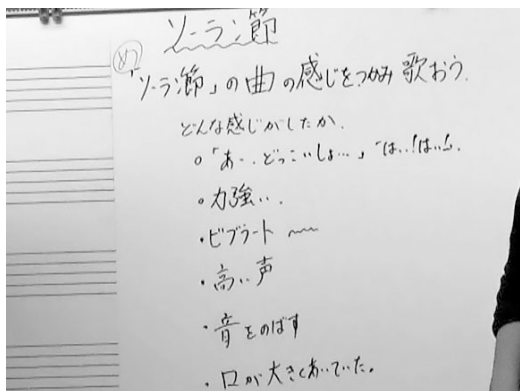 ソーラン節
め
「ソーラン節」の曲の感じをつかみ歌おう。
どんな感じがしたか。
○「あー、どっこいしょ…」「は…!は…!」
○力強い。
・ビブラート 〰
・高い声
・音をのばす
・口が大きくあいていた。